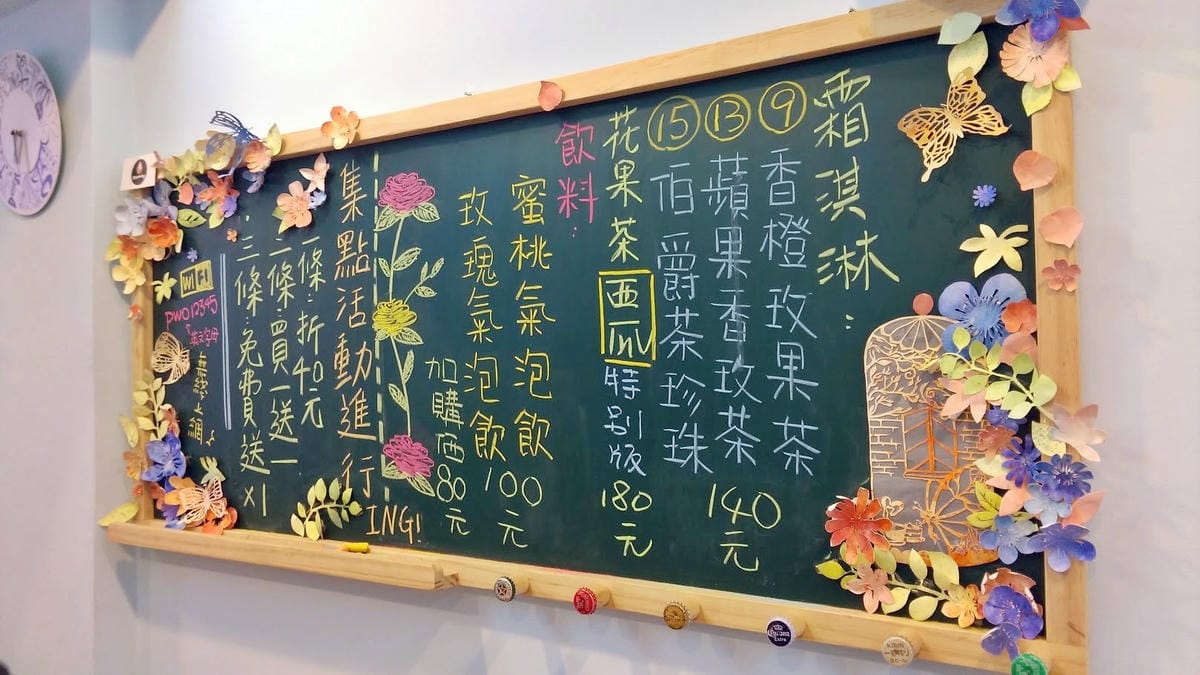 霜淇淋：
⑨香橙玫果茶
⑬蘋果香玫茶
⑮伯爵茶珍珠
140元
花果茶西瓜特别版180元
飲料：
蜜桃氣泡飲
玫瑰氣泡飲
100元
加購西80元
集點活動進行ING!
一條：折40元
二條：買一送一
三條：免費送x1
WIFI
pwo12345
英文字母
無線上網
Corona
Extra